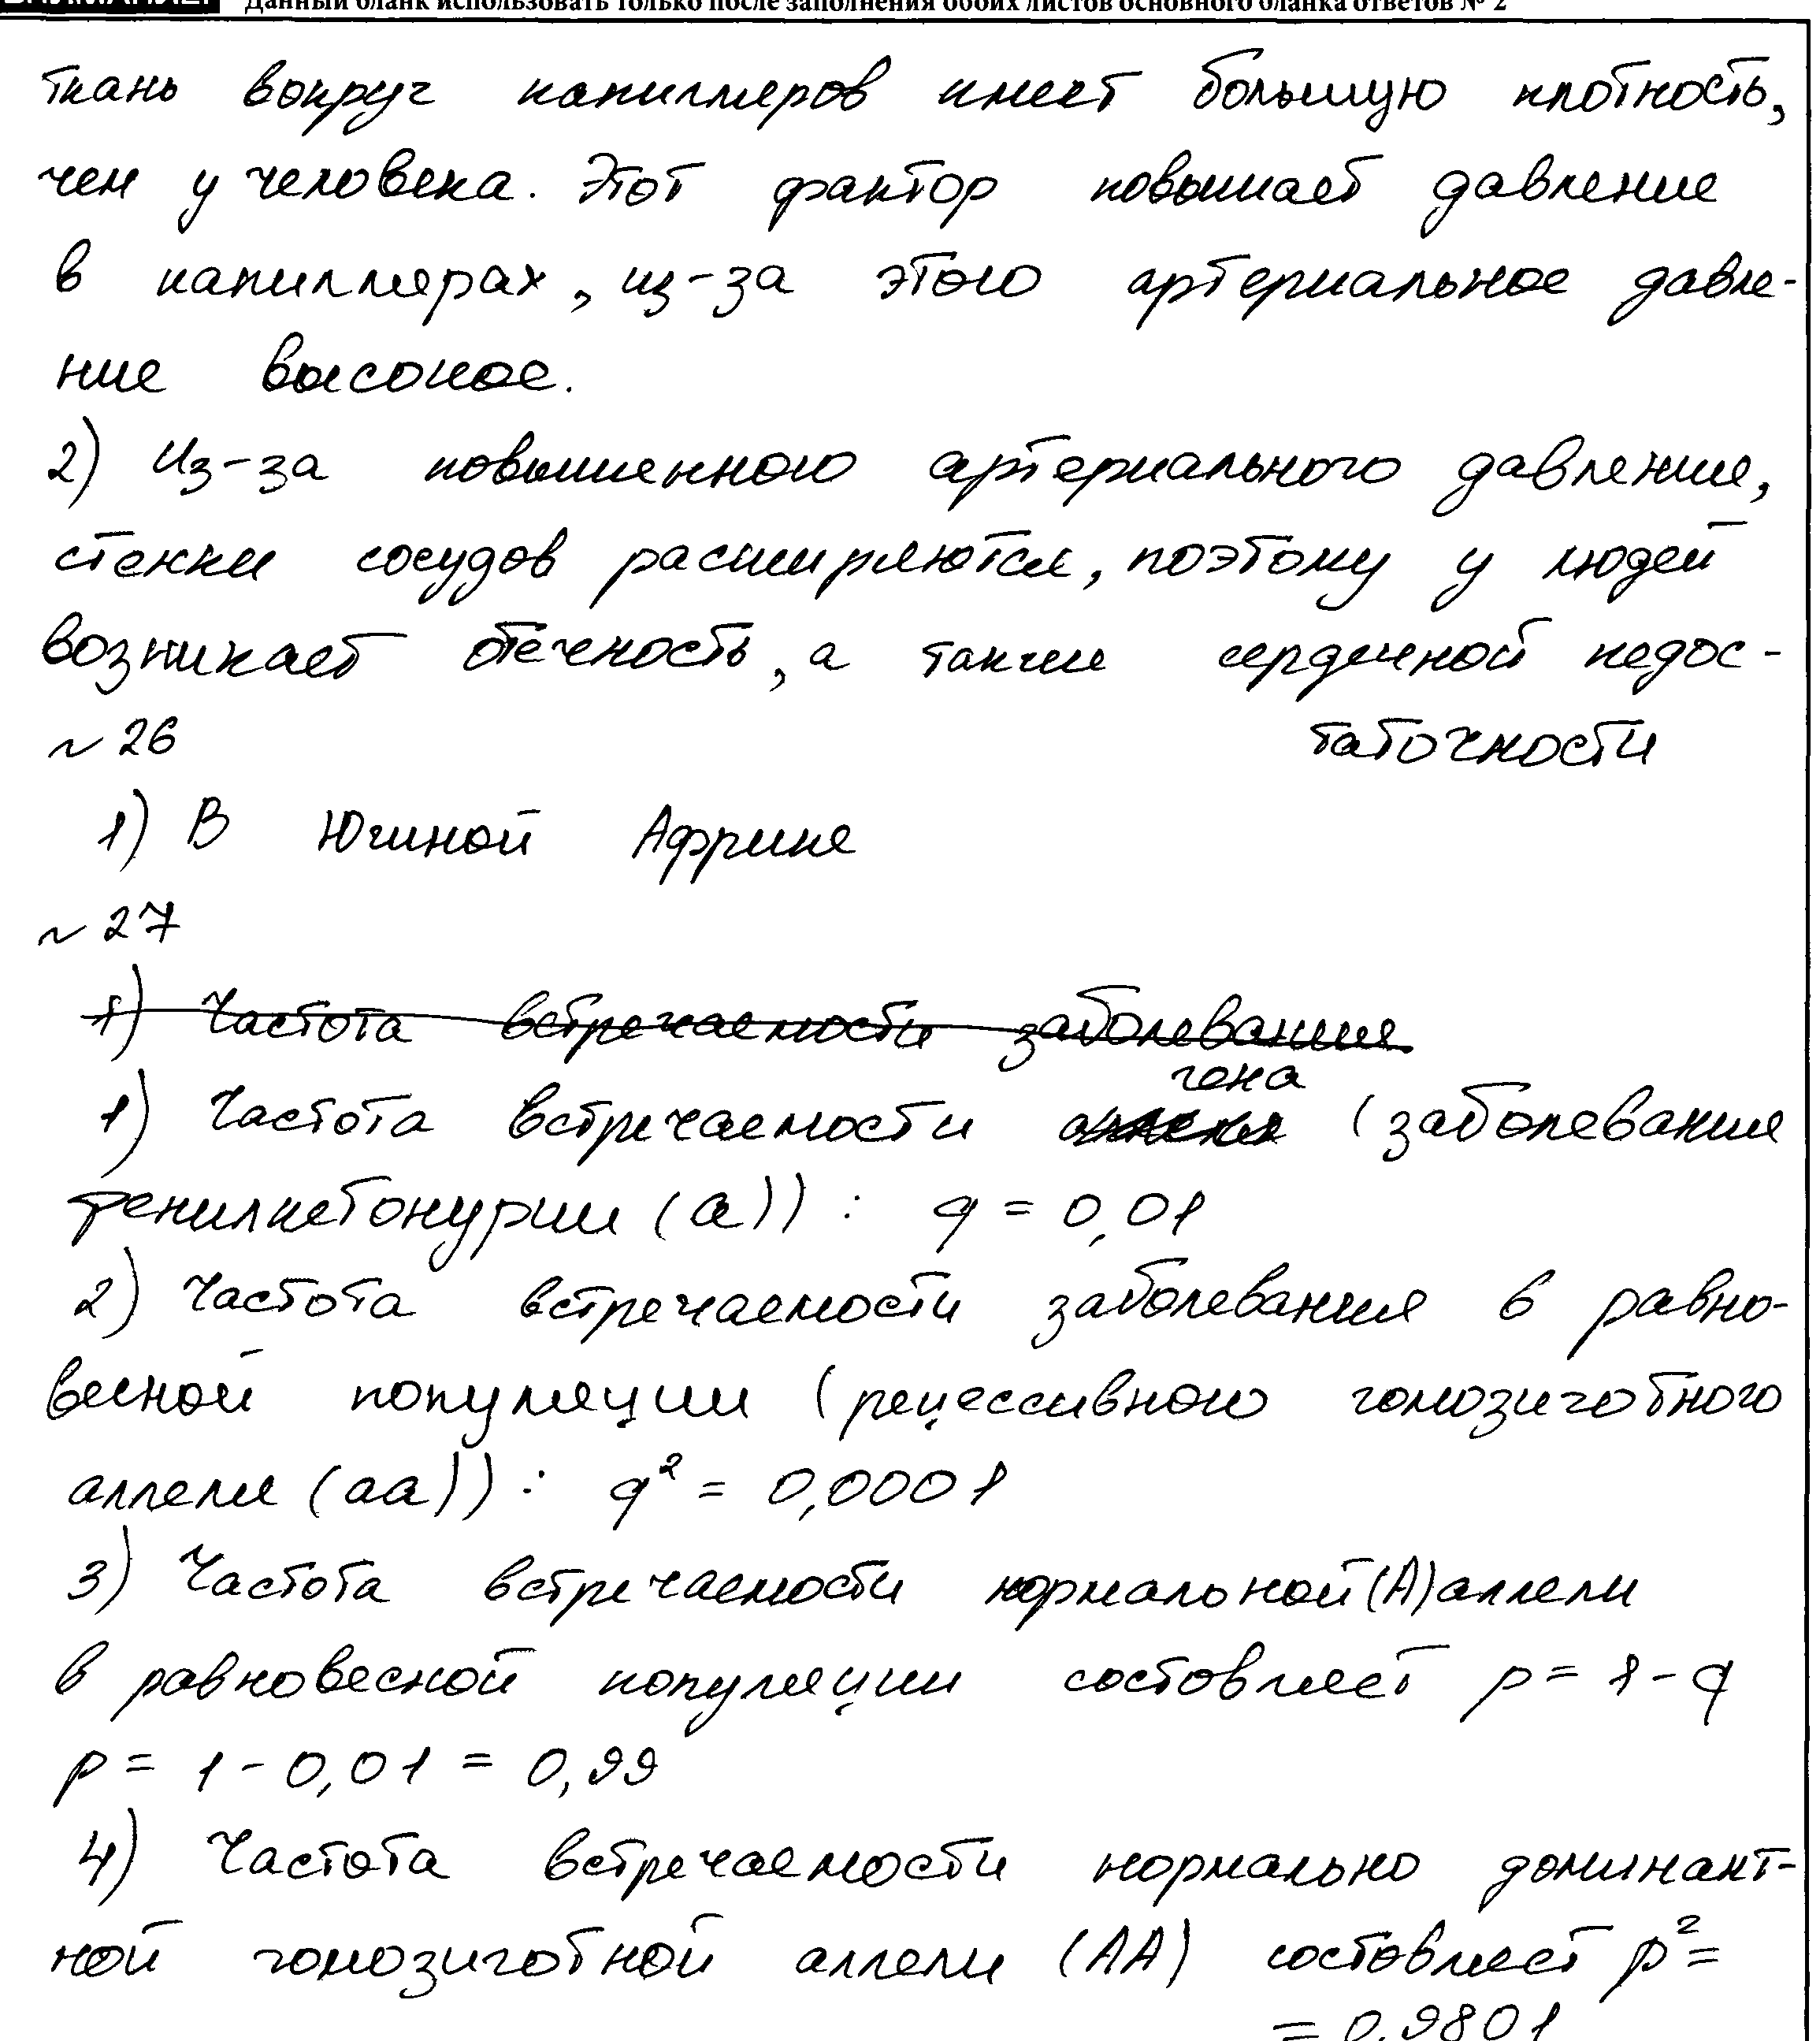 Данный бланк использовать только после заполнения обоих листов основного бланка ответов № 2
ткань вокруг капилляров имеет большую плотность,
чем у человека. Этот фактор повышает давление
в капиллярах, из-за этого артериальное давле-
ние высокое.
2) Из-за повышенного артериального давления,
стенки сосудов расширяются, поэтому у людей
возникает отечность, а также сердечной недос-
таточности
~ 26
1) В Южной Африке
~ 27
1) Частота встречаемости заболевания
гена
1) Частота встречаемости аллеля (заболевания
фенилкетонурии (а)) : q = 0,01
2) Частота встречаемости заболевания в равно-
весной популяции (рецессивного гомозиготного
аллеля (аа)) : q² = 0,0001
3) Частота встречаемости нормальной (А) аллели
в равновесной популяции состовляет p = 1 - q
p = 1 - 0,01 = 0,99
4) Частота встречаемости нормально доминант-
ной гомозиготной аллели (АА) состовляет p² =
= 0,9801